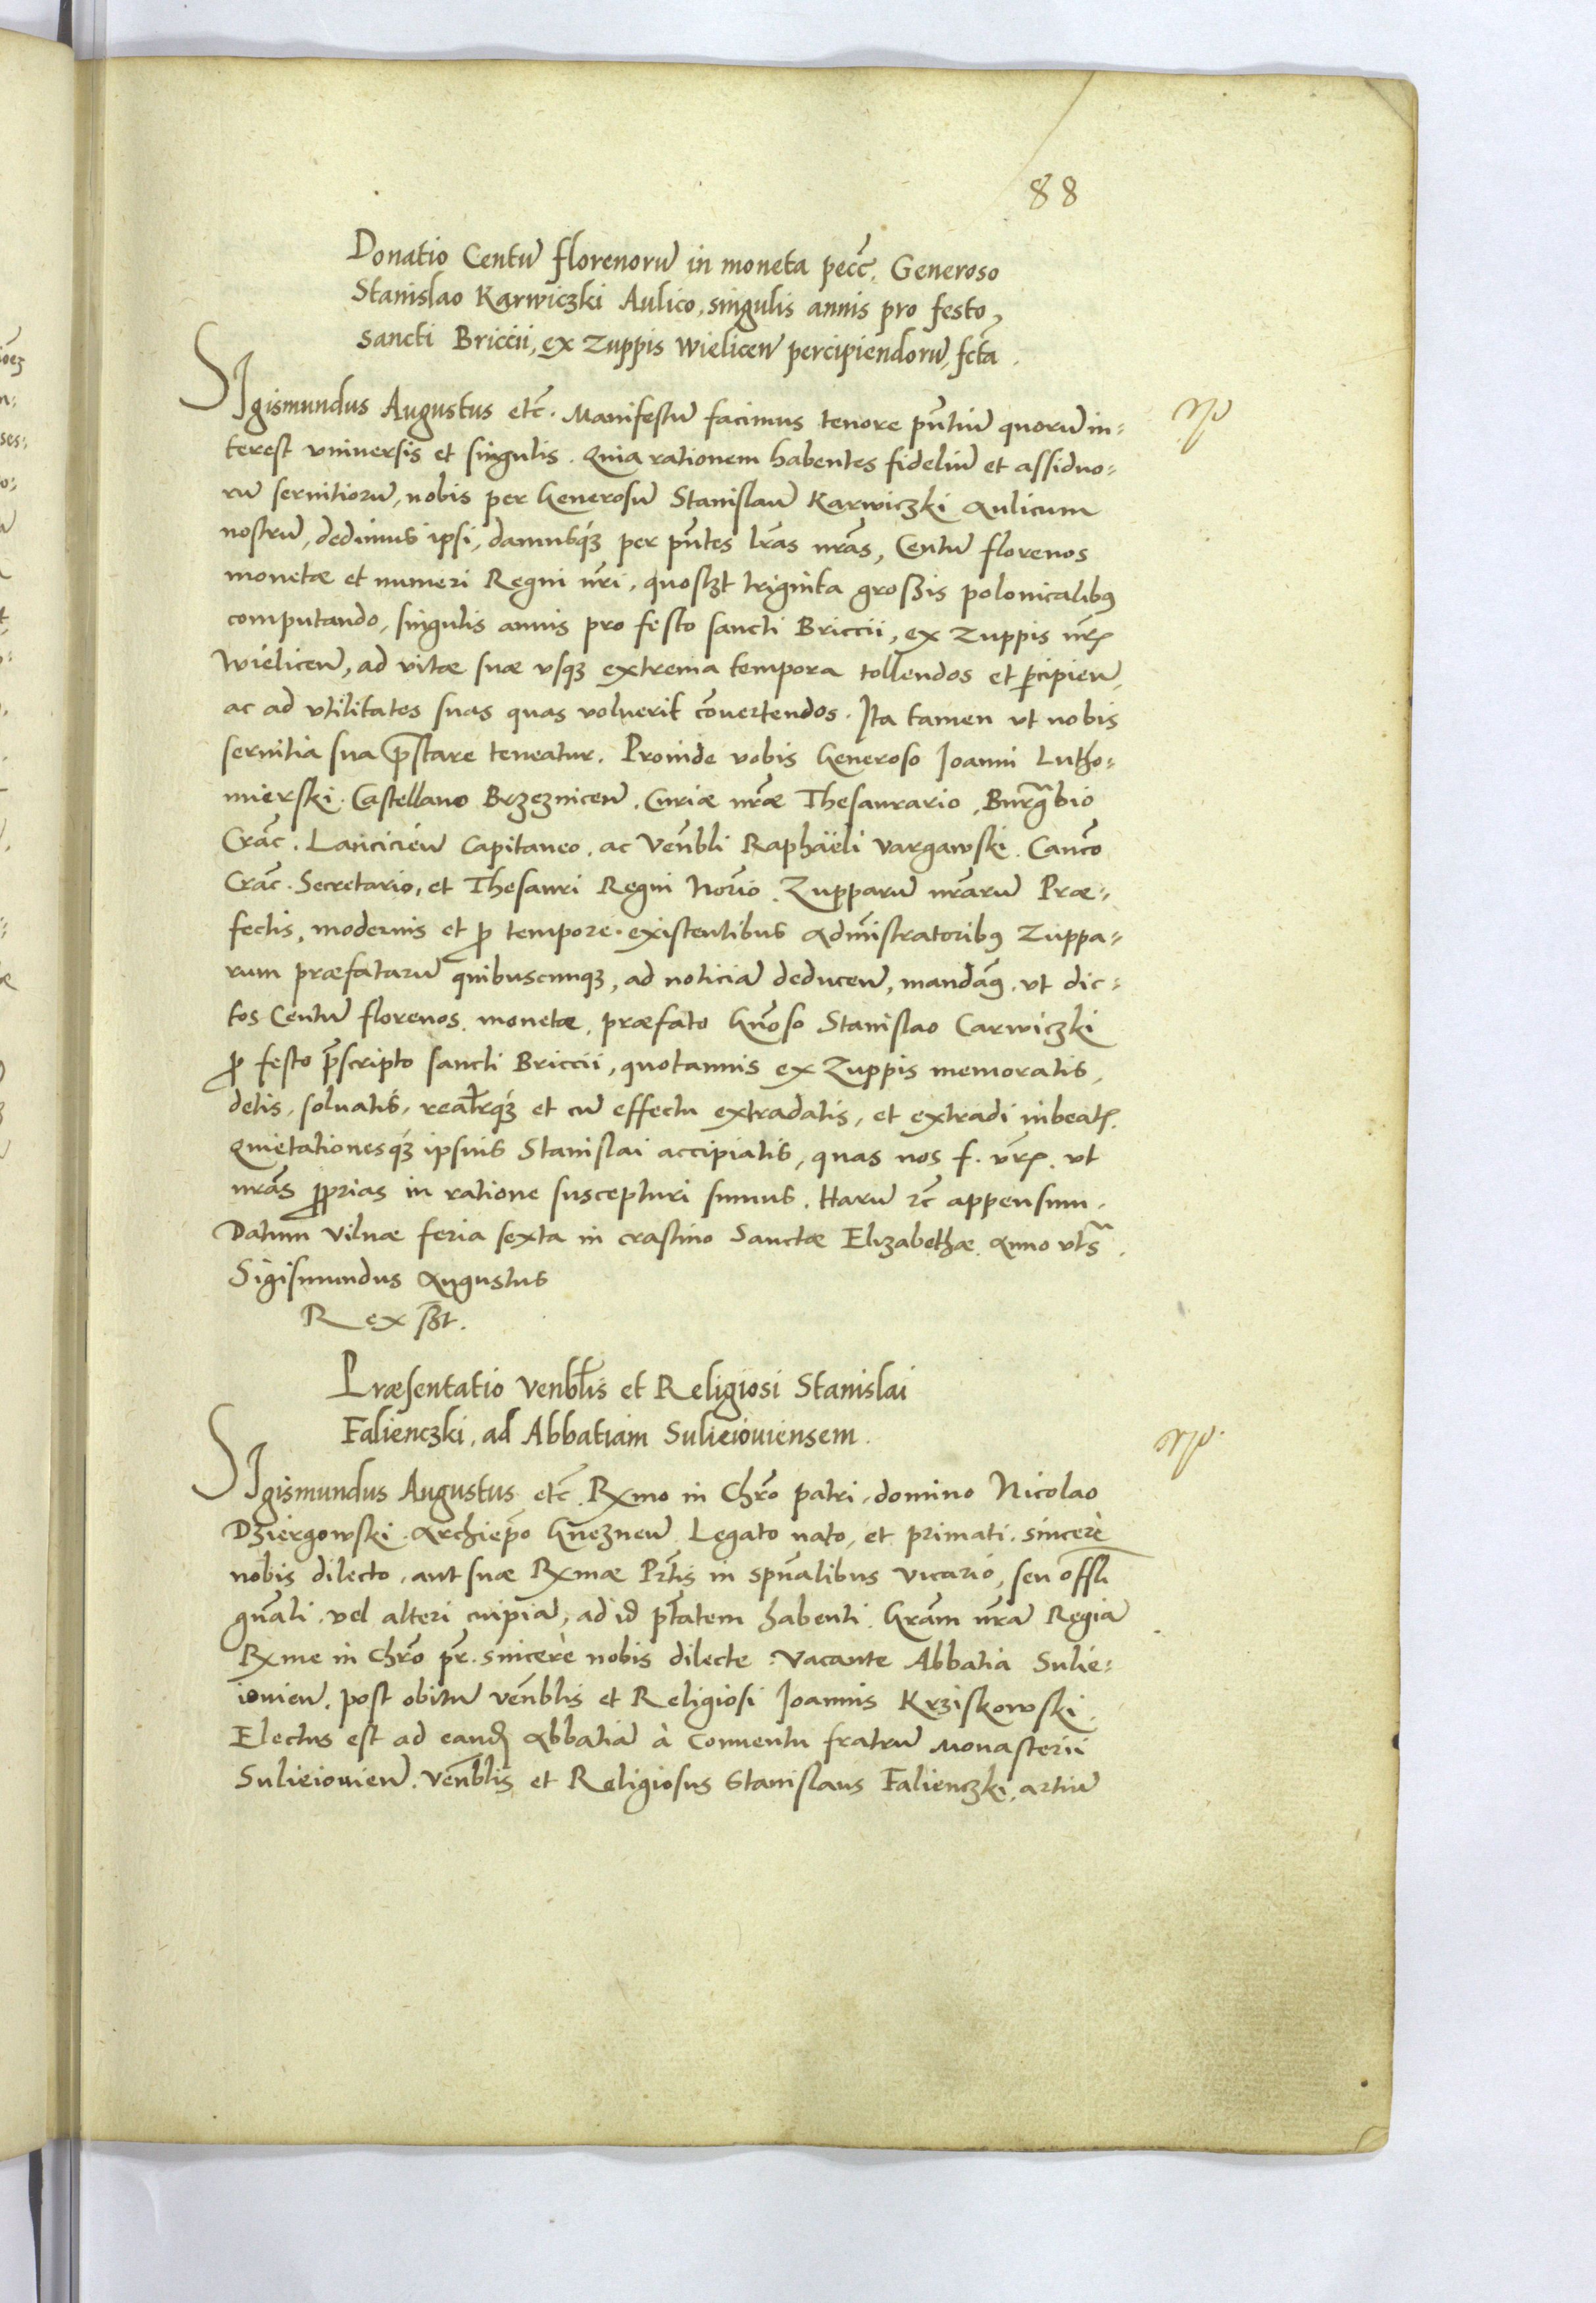 88
Donatio Centū florenorū in moneta pecc̄. Generoso
Stanislao Karwiczki Aulico, singulis annis pro festo,
sancti Briccii, ex Zuppis Wielicen̄ percipiendorū, fct̄a.
SIgismundus Augustus etc̄. Manifestū facimus tenore pn̄tiū quorū in-
terest vniversis et singulis. Quia rationem habentes fideliū et assiduo-
rū seruitiorū, nobis per Generosū Stanislaū Karwiczki Aulicum
nostrū, dedimus ipsi, damusq́ꝫ per pn̄tes lr̄as nr̄as, Centū florenos
monetæ et numeri Regni nr̄i, quoslꝫt triginta groszis polonicalibꝰ
computando, singulis annis pro festo sancti Briccii, ex Zuppis nr̄is
Wielicen̄, ad vitæ suæ vsqꝫ extrema tempora tollendos et ꝑcipien̄,
ac ad vtilitates suas quas voluerit cōuertendos. Ita tamen vt nobis
seruitia sua p̄stare teneatur. Proinde vobis Generoso Ioanni Lutho-
mierski. Castellano Brzeznicen̄. Curiæ nr̄æ Thesaurario, Burgr̄abio
Crac̄. Lancicien̄ Capitaneo. ac Ven̄bli Raphaëli Vargawski. Canc̄o
Crac̄. Secretario, et Thesauri Regni Notr̄io. Zupparū nr̄arū Præ-
fectis, modernis et ꝓ tempore existentibus Adm̄istratoribꝰ Zuppa-
rum præfatarū quibuscunqꝫ, ad noticiā deducen̄, mandāꝰ. vt dic-
tos Centū florenos monetæ, præfato Gn̄oso Stanislao Carwiczki
ꝓ festo p̄scripto sancti Briccii, quotannis ex Zuppis memoratis,
detis, soluatis, realr̄q́ꝫ et cū effectu extradatis, et extradi iubeatis.
Quietationesq́ꝫ ipsius Stanislai accipiatis, quas nos f. vr̄is. vt
nr̄as ꝓprias in ratione suscepturi sumus. Harū ꝛc̄ appensum.
Datum Vilnæ feria sexta in crastino Sanctæ Elizabethæ Anno vts̄.
Sigismundus Augustus
Rex sst.
Præsentatio Venbl̄is et Religiosi Stanislai
Falienczki, ad Abbatiam Sulieiouiensem.
SIgismundus Augustus etc̄. Rx̄mo in Chr̄o patri, domino Nicolao
Dziergowski. Archiep̄o Gneznen̄. Legato nato, et primati. sincerè
nobis dilecto, aut suæ Rx̄mæ Pr̄tis in spūalibus Vicario, seu offl̄i
gn̄ali. vel alteri cuipiā, ad id pt̄atem habenti. Gr̄am nr̄ā Regiā
Rx̄me in Chr̄o pr̄. sincerè nobis dilecte. Vacante Abbatia Sulie-
iouien̄. post obitū ven̄blis et Religiosi Ioannis Krziskowski.
Electus est ad eandē Abbatiā à Conuentu fratrū Monasterii
Sulieiouien̄. Ven̄blis et Religiosus Stanislaus Falienczki, artiū